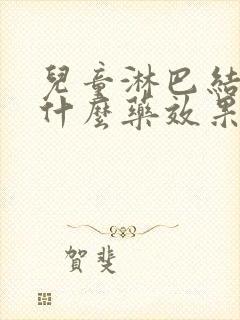 兒童淋巴結
什麼藥效果
賀斐